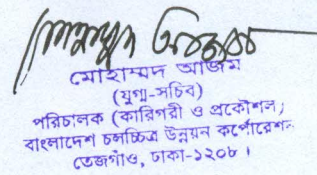 মোহাম্মদ আজম
(যুগ্ম-সচিব)
পরিচালক (কারিগরী ও প্রকৌশল)
বাংলাদেশ চলচ্চিত্র উন্নয়ন কর্পোরেশন
তেজগাঁও, ঢাকা-১২০৮ ।